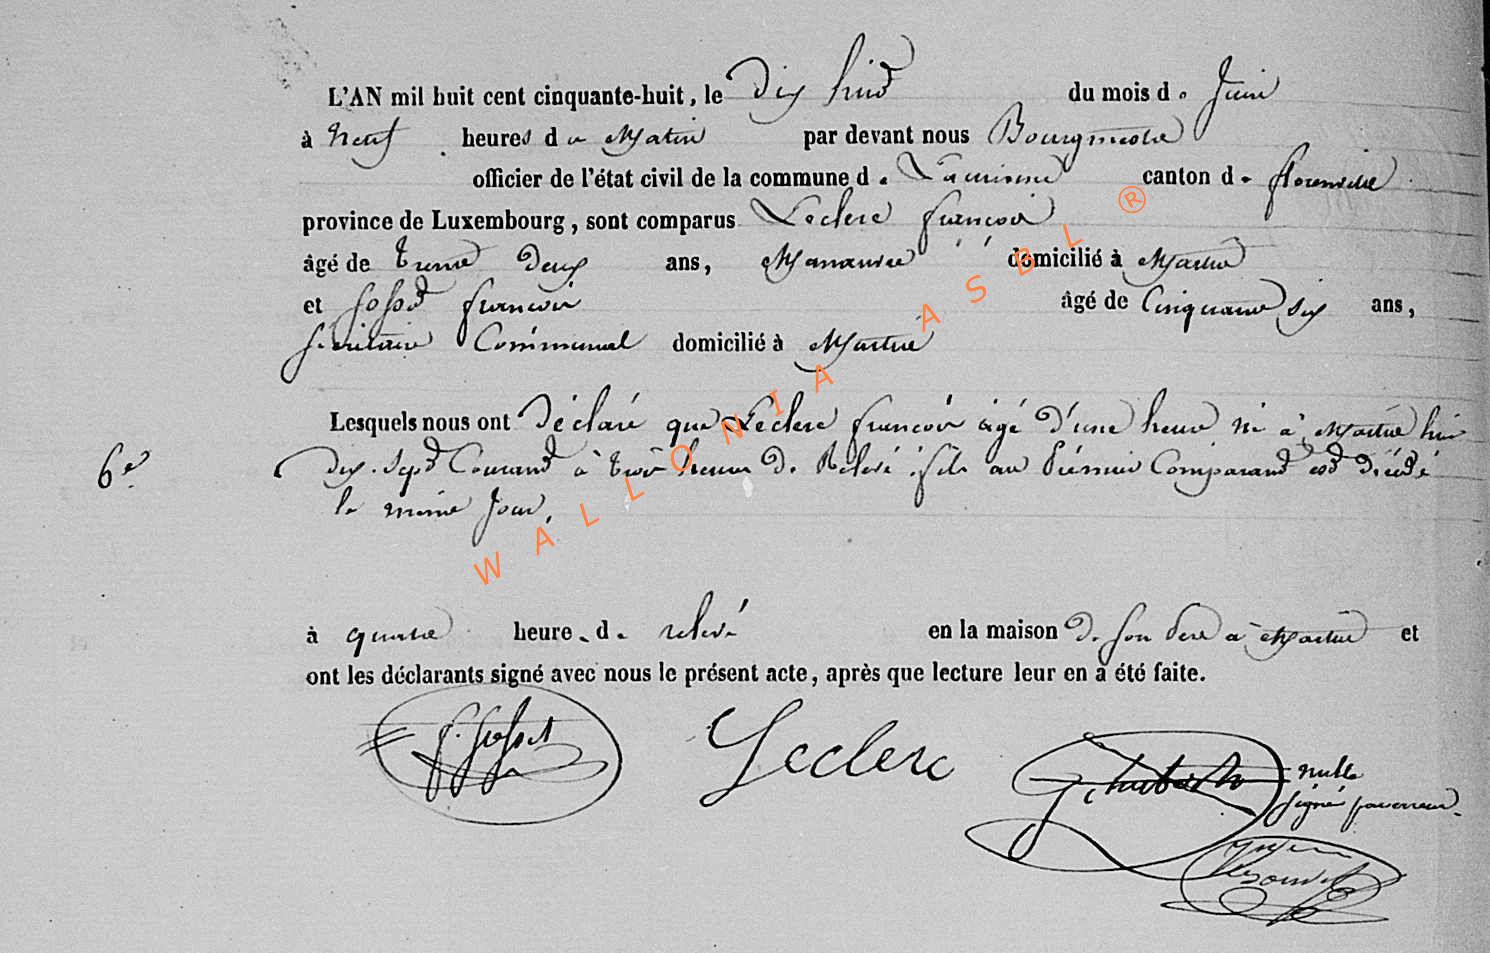 L'AN mil huit cent cinquante-huit, le Dix huit du mois de Juin
à Neuf heures du Matin par devant nous Bourgmestre
officier de l'état civil de la commune d. canton d. florenville
province de Luxembourg, sont comparus Leclerc françois
âgé de Trente Deux ans, Manœuvre domicilié à Martué
et françois âgé de Cinquante six ans,
Sécrétaire Communal domicilié à Martué
Lesquels nous ont Déclaré que Leclerc françois âgé d'une heure né à Martué
6e Dix-Sept Courant à trois heures de Relevé, fils au Prémier Comparant est décédé
le même Jour,
à quatre heure. d. relevé en la maison de son père à Martué et
ont les déclarants signé avec nous le présent acte, après que lecture leur en a été faite.
Leclerc
nulle
signé par erreur.
WALLONIA ASBL ®